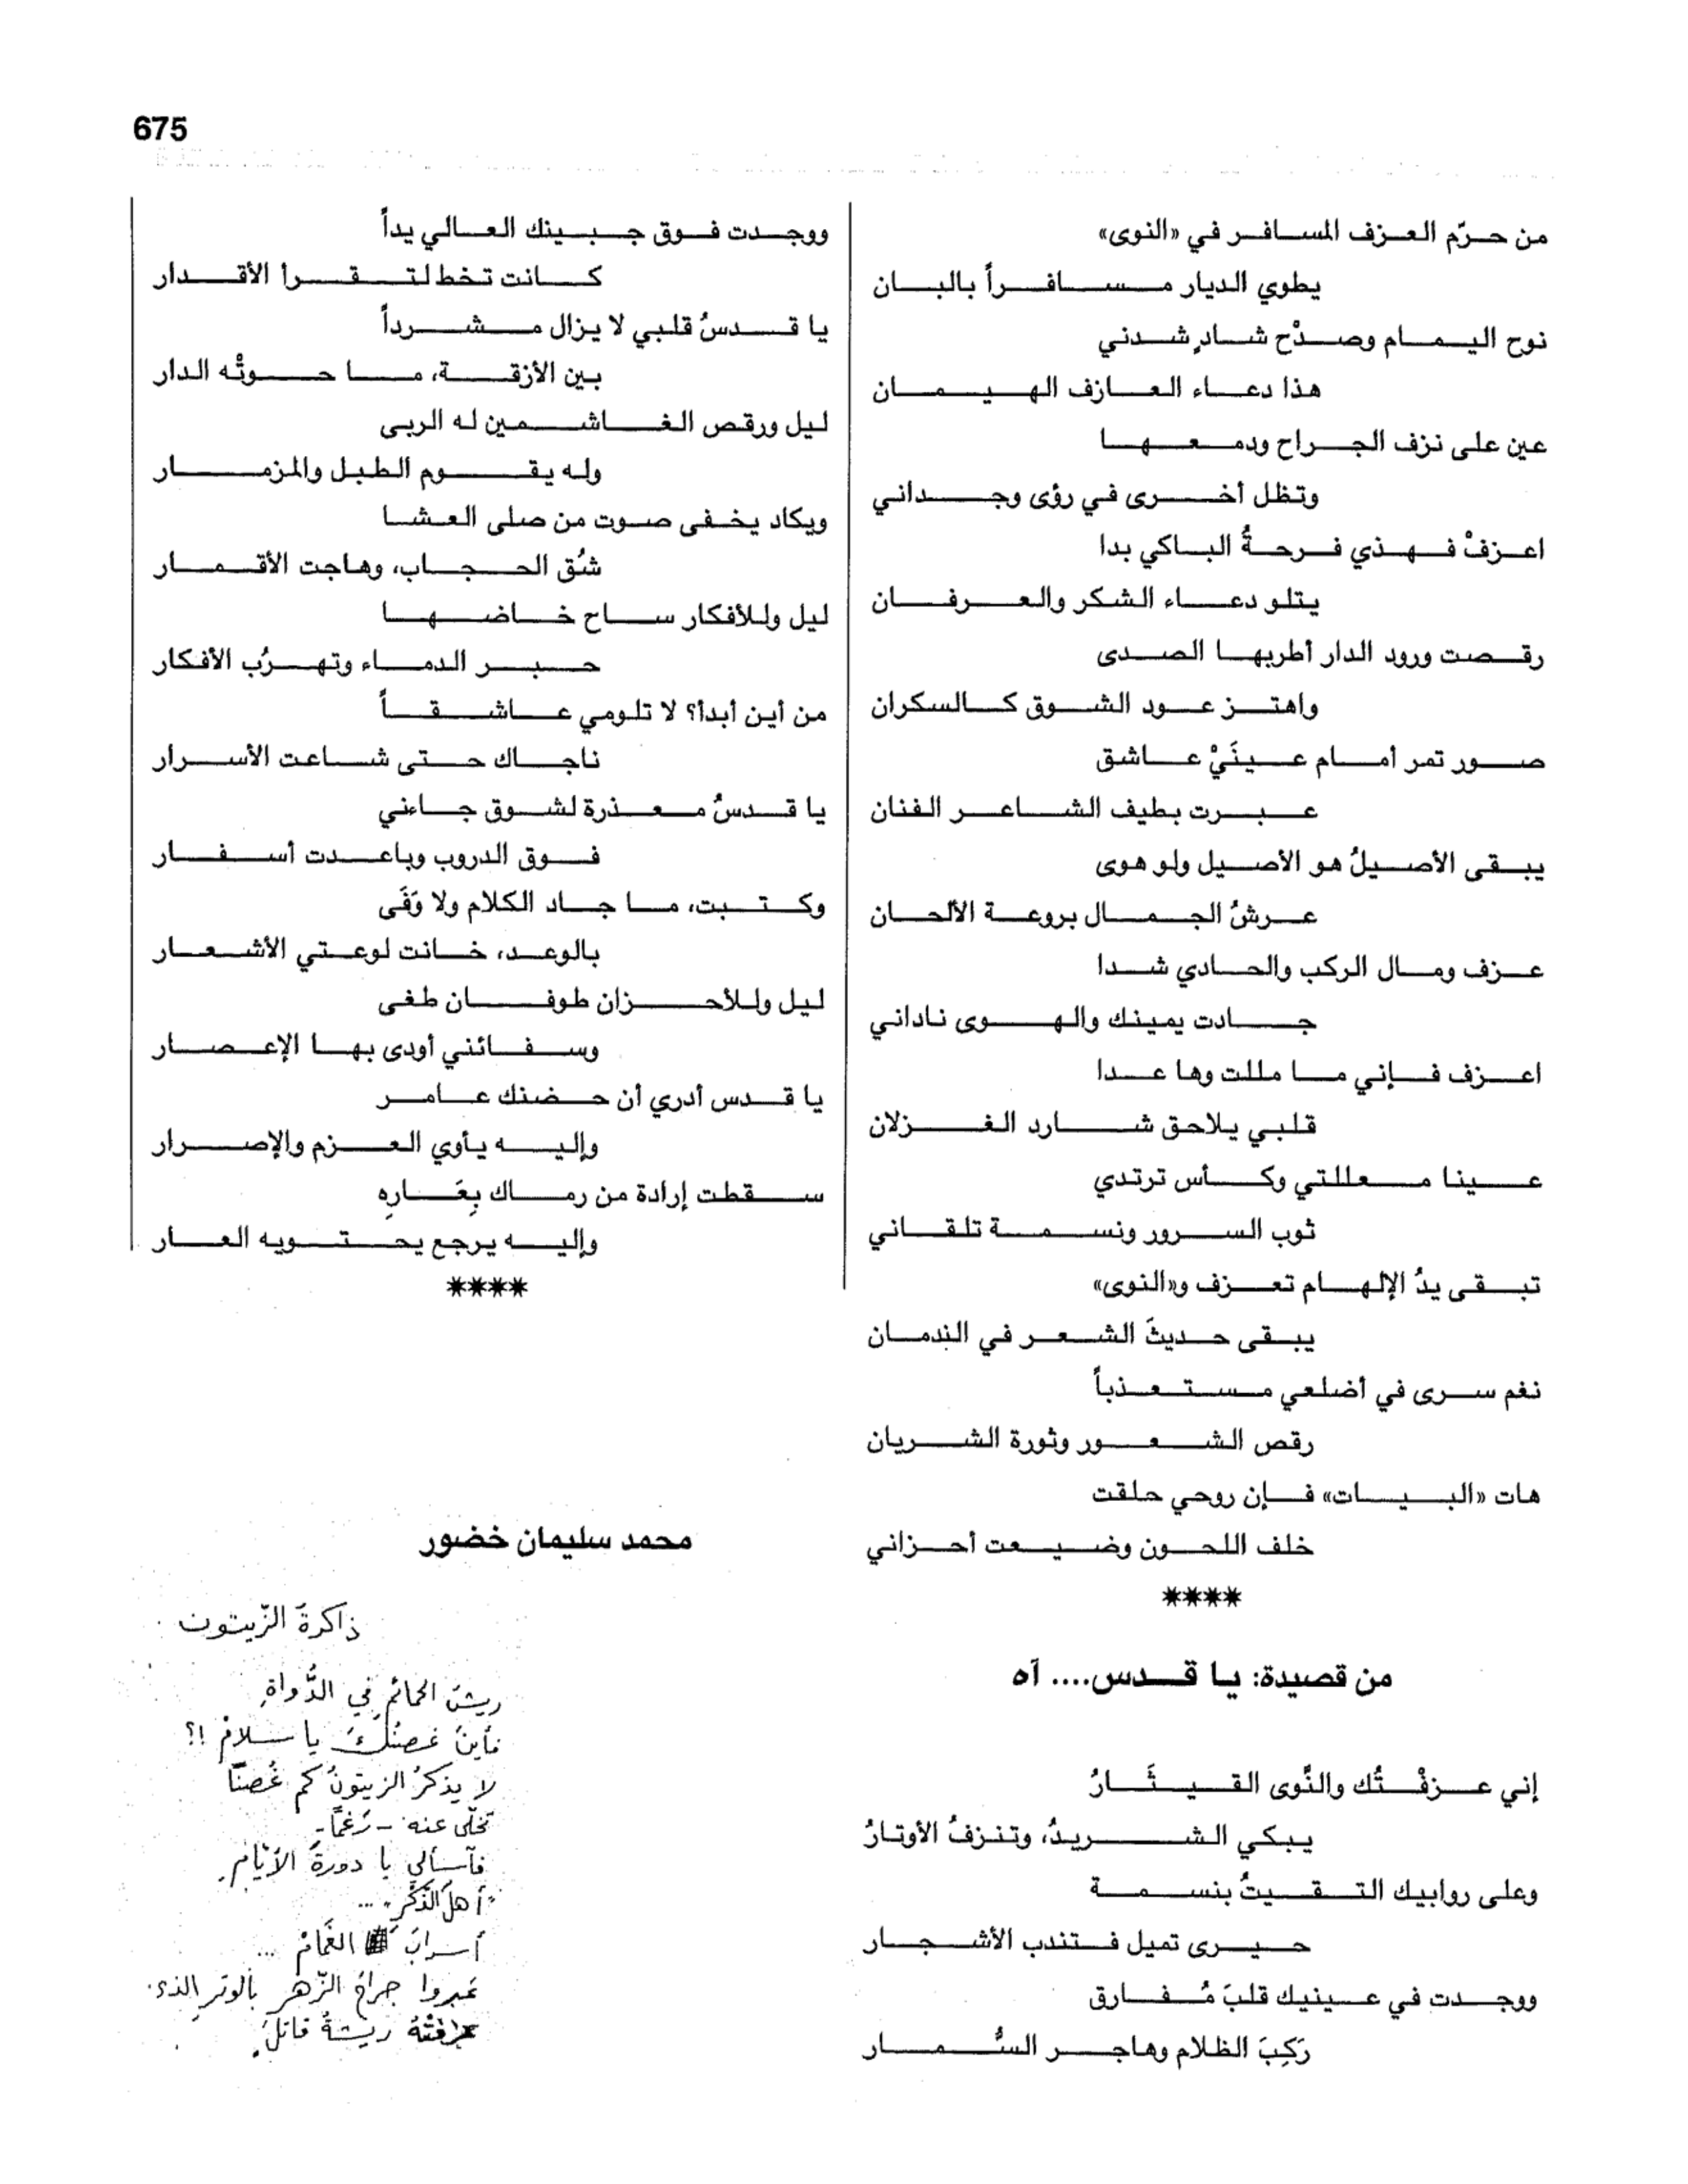 675
من حرّم العزف المسافر في «النوى»
يطوي الديار مسافراً بالبان
نوح اليمام وصدْح شادٍ شدني
هذا دعاء العازف الهيمان
عين على نزف الجراح ودمعها
وتظل أخرى في رؤى وجداني
اعزفْ فهذي فرحةُ الباكي بدا
يتلو دعاء الشكر والعرفان
رقصت ورود الدار أطربها الصدى
واهتز عود الشوق كالسكران
صور تمر أمام عينَيْ عاشق
عبرت بطيف الشاعر الفنان
يبقى الأصيلُ هو الأصيل ولو هوى
عرشُ الجمال بروعة الألحان
عزف ومال الركب والحادي شدا
جادت يمينك والهوى ناداني
اعزف فإني ما مللت وها عدا
قلبي يلاحق شارد الغزلان
عينا معللتي وكأس ترتدي
ثوب السرور ونسمة تلقاني
تبقى يدُ الإلهام تعزف و«النوى»
يبقى حديثَ الشعر في الندمان
نغم سرى في أضلعي مستعذباً
رقص الشعور وثورة الشريان
هات «البيات» فإن روحي حلقت
خلف اللحون وضيعت أحزاني
****
من قصيدة: يا قدس.... آه
إني عزفْتُك والنَّوى القيثَارُ
يبكي الشريدُ، وتنزفُ الأوتارُ
وعلى روابيك التقيتُ بنسمة
حيرى تميل فتندب الأشجار
ووجدت في عينيك قلبَ مُفارق
رَكِبَ الظلام وهاجر السُّمار
ووجدت فوق جبينك العالي يداً
كانت تخط لتقرأ الأقدار
يا قدسُ قلبي لا يزال مشرداً
بين الأزقة، ما حوتْه الدار
ليل ورقص الغاشمين له الربى
وله يقوم الطبل والمزمار
ويكاد يخفى صوت من صلى العشا
شُق الحجاب، وهاجت الأقمار
ليل وللأفكار ساح خاضها
حبر الدماء وتهرُب الأفكار
من أين أبدأ؟ لا تلومي عاشقاً
ناجاك حتى شاعت الأسرار
يا قدسُ معذرة لشوق جاءني
فوق الدروب وباعدت أسفار
وكتبت، ما جاد الكلام ولا وَفَى
بالوعد، خانت لوعتي الأشعار
ليل وللأحزان طوفان طغى
وسفائني أودى بها الإعصار
يا قدس أدري أن حضنك عامر
وإليه يأوي العزم والإصرار
سقطت إرادة من رماك بِعَارِهِ
وإليه يرجع يحتويه العار
****
محمد سليمان خضور
ذاكرةَ الزّيتون
ريشَ الحمائمِ في الدُّواةِ
فأينَ غصنُكَ يا سلامْ !؟
لا يذكرُ الزيتونُ كم غُصنًا
تخلّى عنه - رَغمًا-
فآسألي يا دورةَ الأيّامِ
"أهلَ الذّكر" ...
أسرابَ الغَمامْ ...
عَبروا جراحَ الزّهر بالوترِ الذي
عزفتْهُ ريشةُ قاتلْ